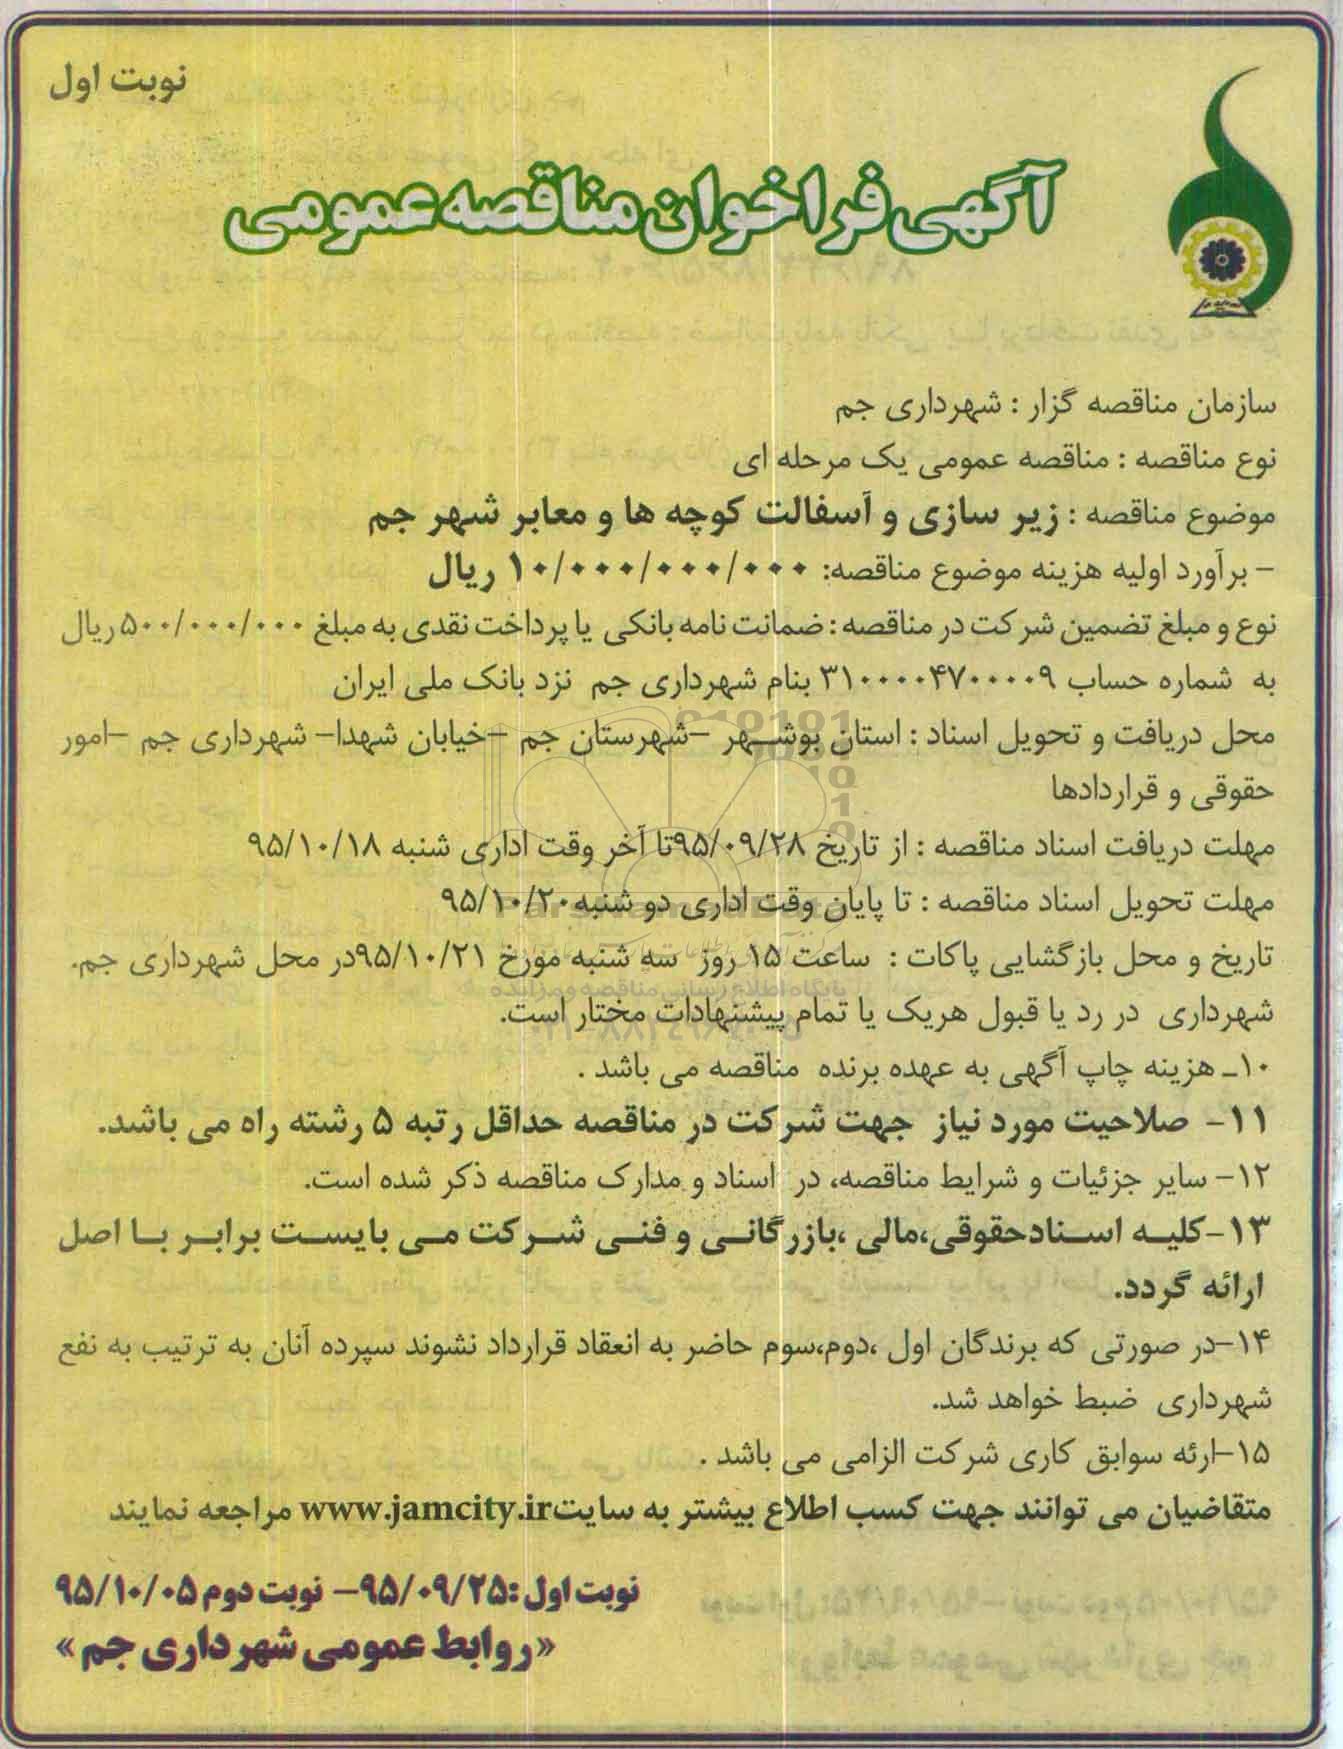 نوبت اول
آگهی فراخوان مناقصه عمومی
سازمان مناقصه گزار : شهرداری جم
نوع مناقصه : مناقصه عمومی یک مرحله ای
موضوع مناقصه : زیر سازی و آسفالت کوچه ها و معابر شهر جم
- برآورد اولیه هزینه موضوع مناقصه: ۱۰/۰۰۰/۰۰۰/۰۰۰ ریال
نوع و مبلغ تضمین شرکت در مناقصه : ضمانت نامه بانکی یا پرداخت نقدی به مبلغ ۵۰۰/۰۰۰/۰۰۰ ریال
به شماره حساب ۳۱۰۰۰۰۴۷۰۰۰۰۹ بنام شهرداری جم نزد بانک ملی ایران
محل دریافت و تحویل اسناد : استان بوشهر –شهرستان جم –خیابان شهدا– شهرداری جم –امور
حقوقی و قراردادها
مهلت دریافت اسناد مناقصه : از تاریخ ۹۵/۰۹/۲۸تا آخر وقت اداری شنبه ۹۵/۱۰/۱۸
مهلت تحویل اسناد مناقصه : تا پایان وقت اداری دو شنبه۹۵/۱۰/۲۰
تاریخ و محل بازگشایی پاکات : ساعت ۱۵ روز سه شنبه مورخ ۹۵/۱۰/۲۱در محل شهرداری جم.
شهرداری در رد یا قبول هریک یا تمام پیشنهادات مختار است.
۱۰ـ هزینه چاپ آگهی به عهده برنده مناقصه می باشد .
۱۱- صلاحیت مورد نیاز جهت شرکت در مناقصه حداقل رتبه ۵ رشته راه می باشد.
۱۲- سایر جزئیات و شرایط مناقصه، در اسناد و مدارک مناقصه ذکر شده است.
۱۳-کلیه اسنادحقوقی،مالی ،بازرگانی و فنی شرکت می بایست برابر با اصل
ارائه گردد.
۱۴–در صورتی که برندگان اول ،دوم،سوم حاضر به انعقاد قرارداد نشوند سپرده آنان به ترتیب به نفع
شهرداری ضبط خواهد شد.
۱۵–ارئه سوابق کاری شرکت الزامی می باشد .
متقاضیان می توانند جهت کسب اطلاع بیشتر به سایتwww.jamcity.ir مراجعه نمایند
نوبت اول :۹۵/۰۹/۲۵- نوبت دوم ۹۵/۱۰/۰۵
«روابط عمومی شهرداری جم»